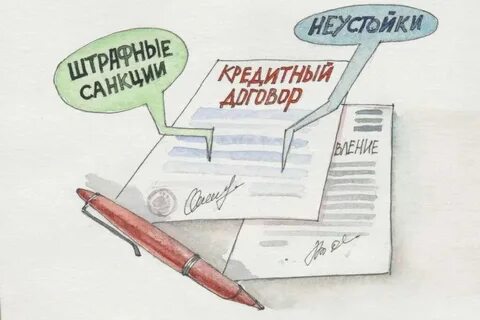 ШТРАФНЫЕ
САНКЦИИ
НЕУСТОЙКИ
КРЕДИТНЫЙ
ДОГОВОР
ВЛЕНИЕ